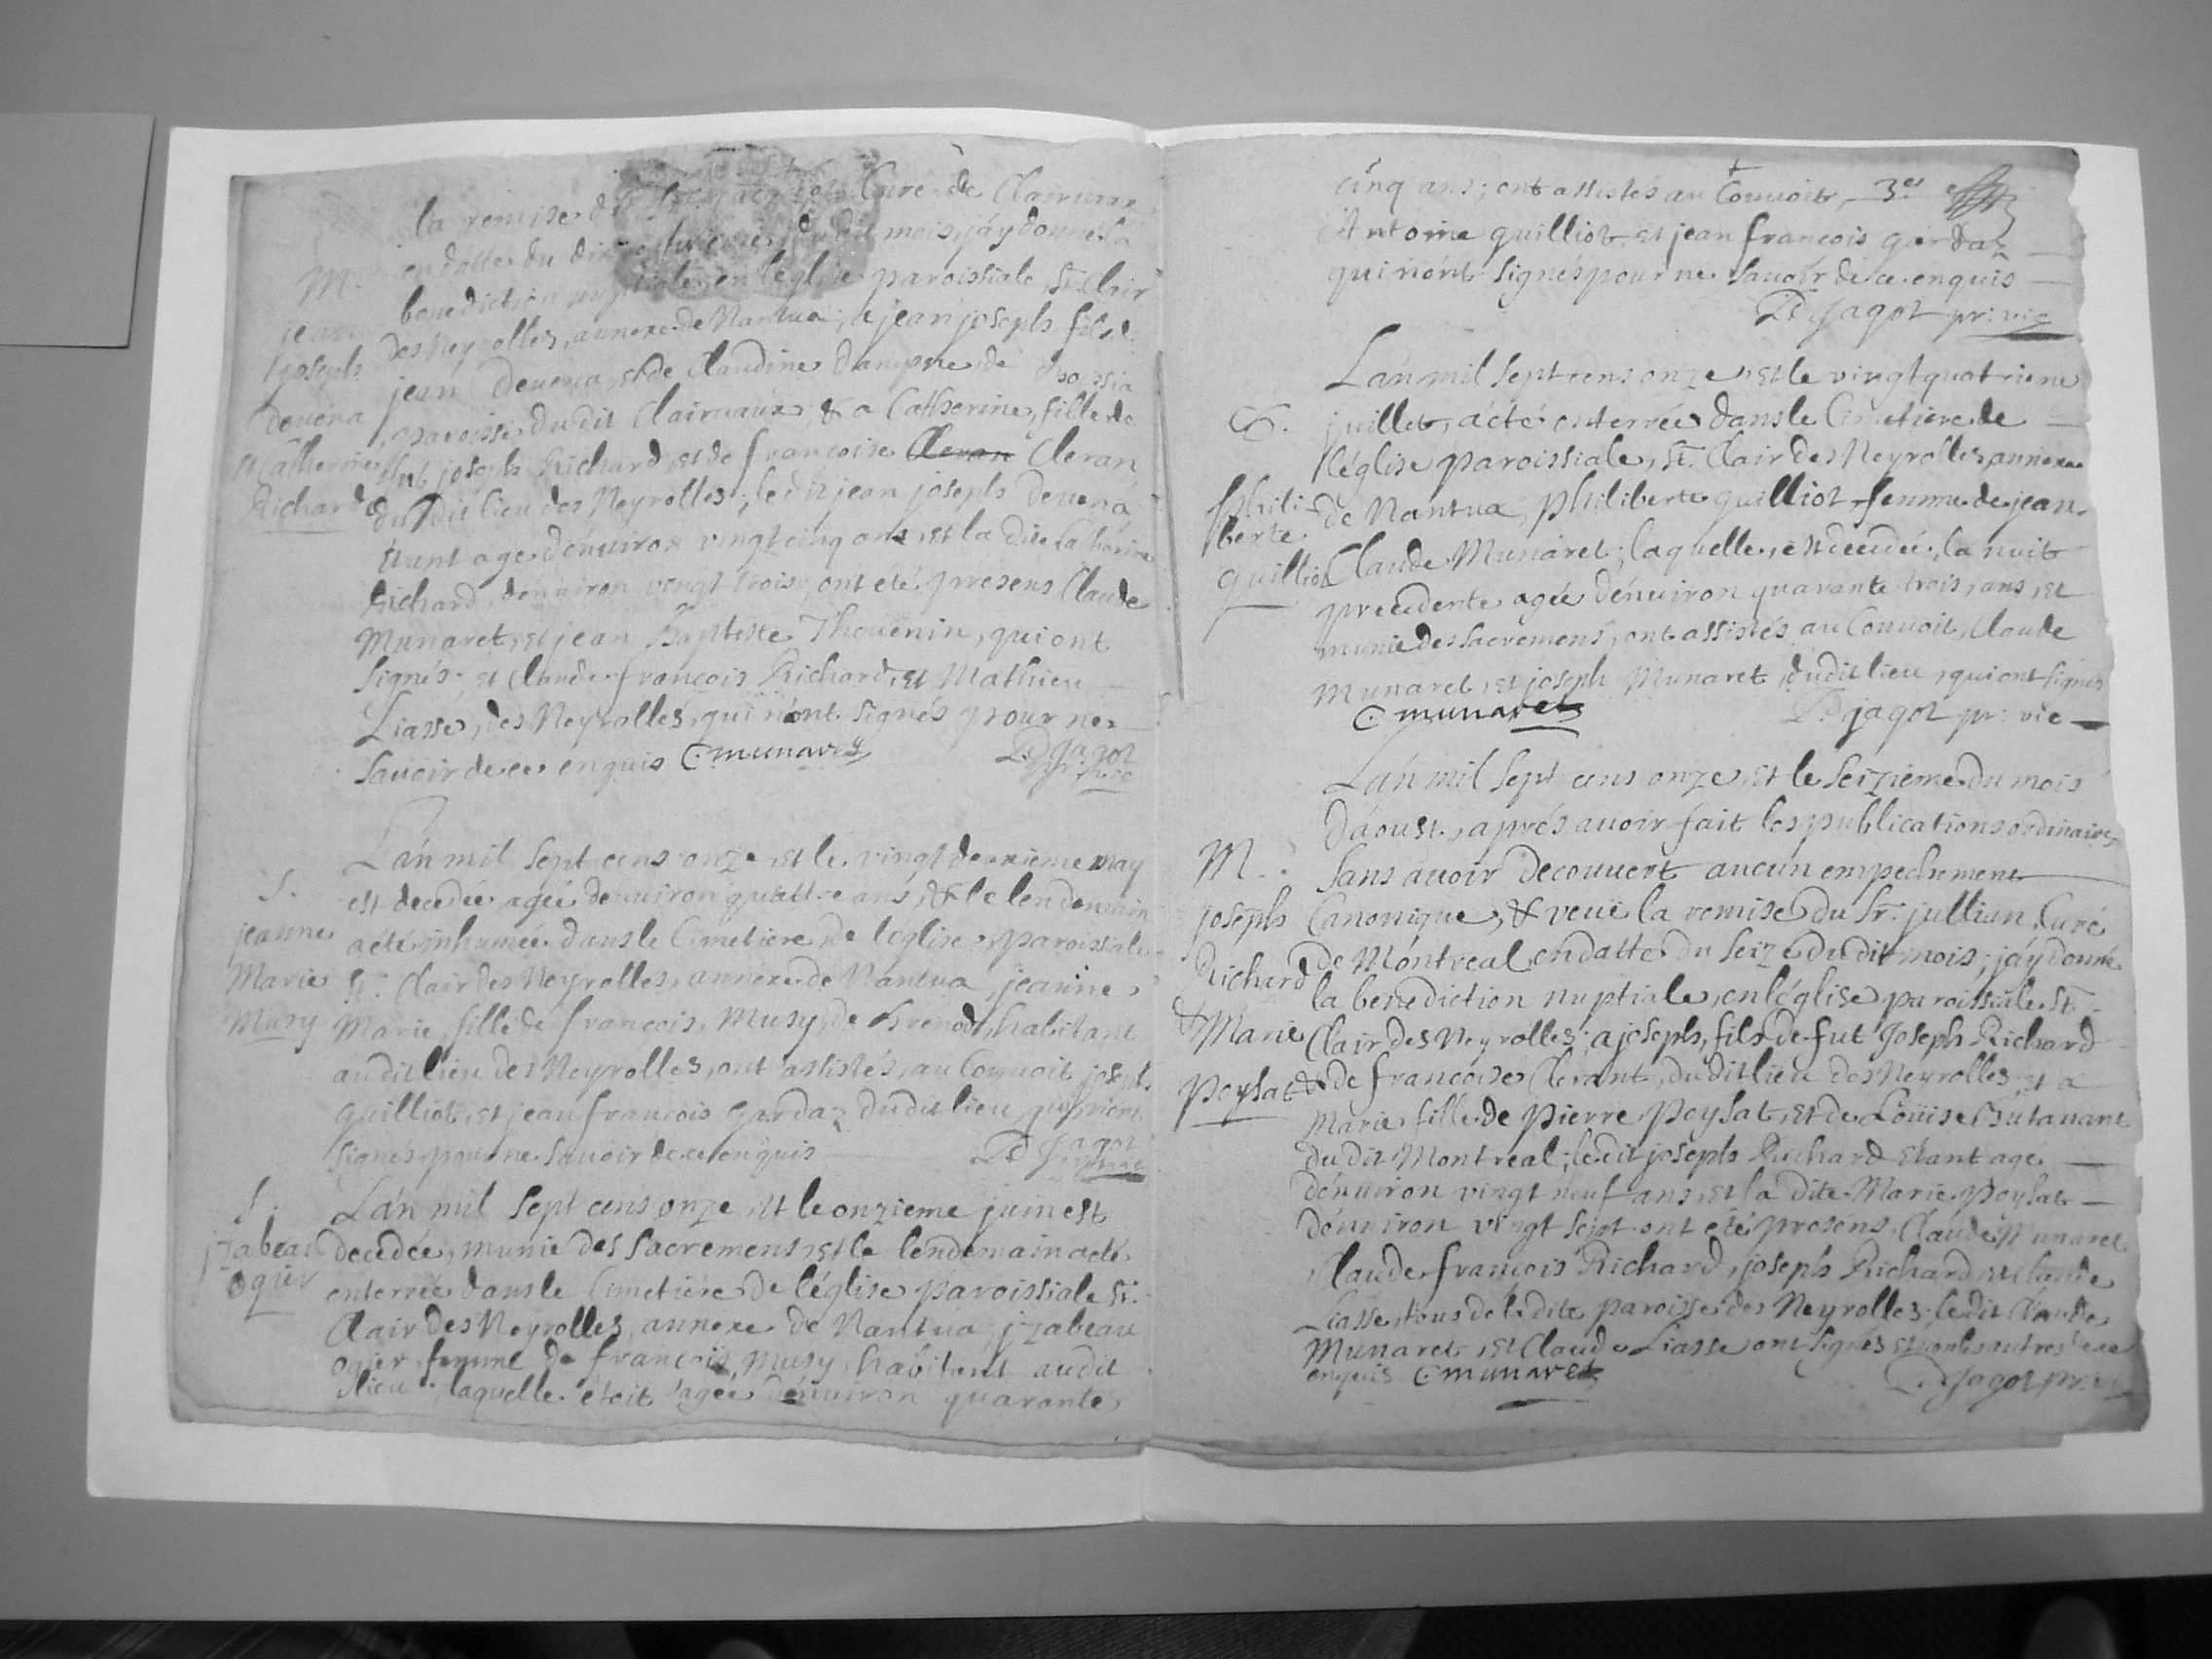 la remise Curé de Clairvaux
en datte du dudit mois, jáy donné la
M.
benediction nuptiale, en l'eglise paroissiale St. Clair
jean
joseph
des Neyrolles, annexe de Nantua; a jean joseph fils de
devena
jean Devena, et de Claudine Dampne de
paroisse du dit Clairvaux, & a Catherine, fille de
et Catherine
fut joseph Richard, et de françoise Cleran Cleran
Richard
du dit lieu des Neyrolles; le dit jean joseph Devena
étant age dénuiron vingt cinq ans, et la dite Catherine
Richard, dénuiron vingt trois; ont été presens Claude
Munaret, et jean Baptiste Thouenin, qui ont
signés; et Claude françois Richard, et Mathieu
Liasse, des Neyrolles, qui n'ont signés pour ne
sauoir de ce enquis C. munaret D. Jagot
pr. vic
Lán mil sept cens onze, et le vingt deuxieme may
S.
est decedée agée denuiron quattre ans, & le lendemain
jeanne
a été inhumée dans le Cimetiere de l'eglise paroissiale
Marie
St. Clair des Neyrolles, annexe de Nantua, jeanne
Musy
Marie, fille de françois Musy, de Brenod, habitant
au dit lieu des Neyrolles, ont assistés, au Conuoit joseph
quilliot, et jean francois gardaz dudit lieu, qui n'ont
signés pour ne sauoir de ce enquis D. Jagot
pr. vic
S.
Lán mil sept cens onze, et le onzieme juin est
jzabeau
decedée, munie des sacremens, et le lendemain a été
ogier
enterrée dans le Cimetiére de l'église paroissiale St.
Clair des Neyrolles, annexe de Nantua, jzabeau
ogier, femme de françois Musy, habitant audit
lieu; laquelle étoit agée dénuiron quarante
cinq ans; ont assistés au Conuoit, 3es
Antoine quilliot, et jean francois gardaz
qui n'ont signés pour ne sauoir de ce enquis
D. Jagot pr: vic
Lán mil sept cens onze, et le vingt quatrieme
S.
juillet, a été enterrée dans le Cimetiere de
l'église paroissiale, St. Clair des Neyrolles, annexe
Phili-
berte
de Nantua, Philiberte quilliot femme de jean
quilliot
Claude Munaret; laquelle, est decedée, la nuit
precedente agée dénuiron quarante trois, ans, et
munie des sacremens, ont assistés, au Conuoit, Claude
Munaret, et joseph Munaret, dudit lieu, qui ont signés
C. munaret D. jagot pr: vic
Lán mil sept cens onze, et le seizieme du mois
dáoust, aprés auoir fait les publications ordinaires
M.
sans auoir decouuert aucun empechement
joseph
Canonique, & veuë la remise du Sr. jullian, Curé
Richard
de Móntreal, en datte du seize dudit mois; jáy donné
la benediction nuptiale, en l'église paroissiale St.
& Marie
Clair des Neyrolles; a joseph, fils de fut Joseph Richard
Peysat
& de francoise Clerant, du dit lieu des Neyrolles, et a
Marie fille de Pierre Peysat, et de Loüise Butanant
du dit Montreal; le dit joseph Richard étant age
dénuiron vingt neuf ans, et la dite Marie Peysat
dénuiron vingt sept ont été presens, Claude Munaret
Claude françois Richard, joseph Richard, et Claude
Liasse, tous de la dite paroisse des Neyrolles; le dit Claude
Munaret, et Claude Liasse ont signés et non les autres de ce
enquis C. munaret D. Jagot pr. vic